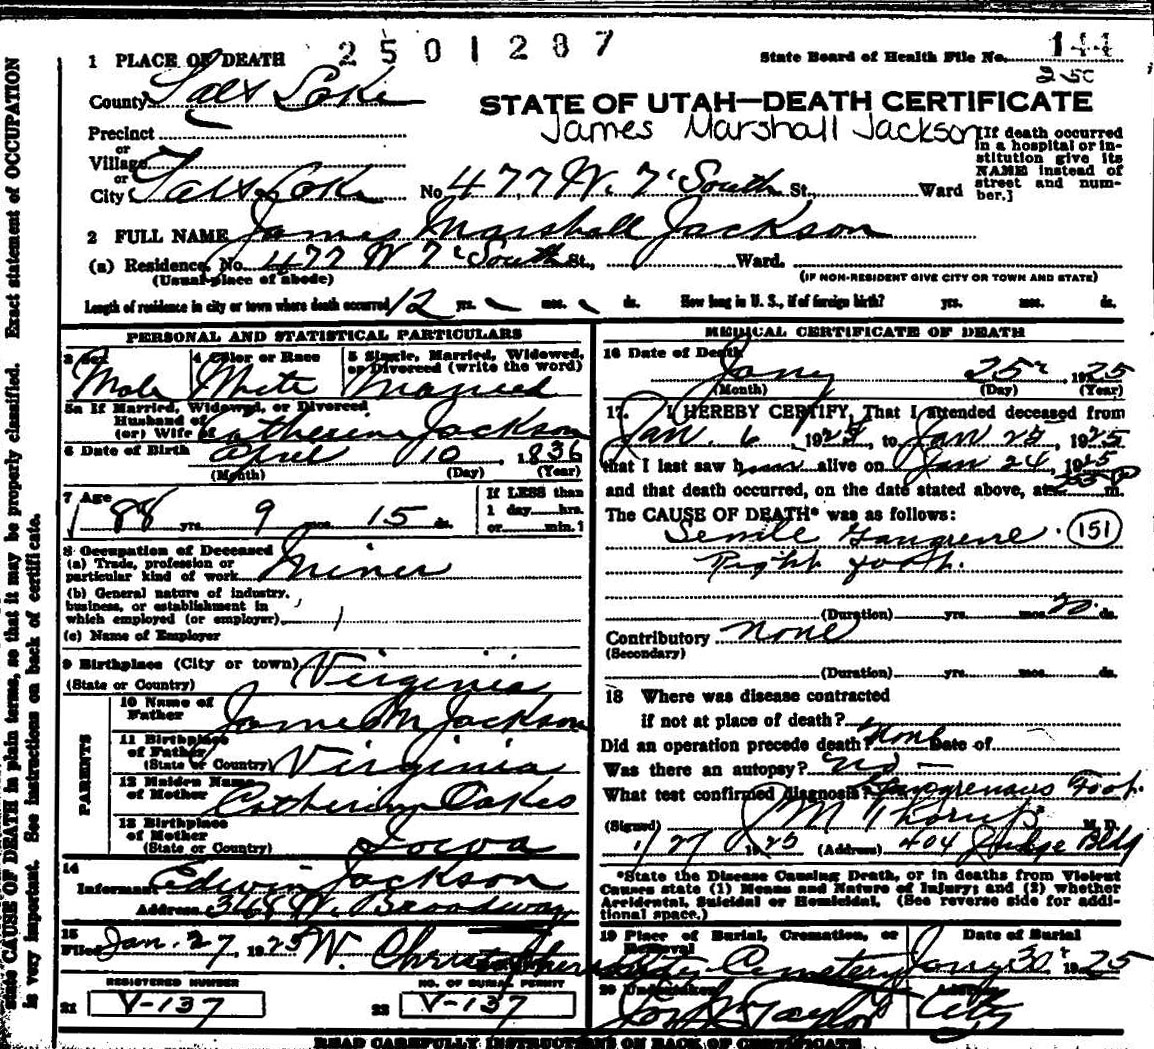 2501287
1 PLACE OF DEATH
State Board of Health File No. 144
250
County Salt Lake
STATE OF UTAH—DEATH CERTIFICATE
James Marshall Jackson
Precinct
or
Village
or
City Salt Lake No. 477 W. 7" South St., Ward
[If death occurred
in a hospital or in-
stitution give its
NAME instead of
street and num-
ber.]
2 FULL NAME James Marshall Jackson
(a) Residence, No. 477 W 7" South St., Ward.
(Usual place of abode) (IF NON-RESIDENT GIVE CITY OR TOWN AND STATE)
Length of residence in city or town where death occurred 12 yrs. mos. ds. How long in U. S., if of foreign birth? yrs. mos. ds.
PERSONAL AND STATISTICAL PARTICULARS
3 Sex 4 Color or Race 5 Single, Married, Widowed,
or Divorced (write the word)
Male White Married
5a If Married, Widowed, or Divorced
Husband of
(or) Wife of Catherine Jackson
6 Date of Birth April 10, 1836
(Month) (Day) (Year)
7 Age If LESS than
1 day hrs.
or min.?
88 yrs. 9 mos. 15 ds.
8 Occupation of Deceased
(a) Trade, profession or
particular kind of work Miner
(b) General nature of industry,
business, or establishment in
which employed (or employer)
(c) Name of Employer
9 Birthplace (City or town) Virginia
(State or Country)
PARENTS
10 Name of
Father James M Jackson
11 Birthplace
of Father
(State or Country) Virginia
12 Maiden Name
of Mother Catherine Oakes
13 Birthplace
of Mother
(State or Country) Iowa
14
Informant Edwin Jackson
Address 368 W. Broadway
15
Filed Jan. 27, 1925 W. Christopherson
REGISTERED NUMBER
21 V-137
NO. OF BURIAL PERMIT
22 V-137
MEDICAL CERTIFICATE OF DEATH
16 Date of Death
Jany 25, 1925
(Month) (Day) (Year)
17. I HEREBY CERTIFY, That I attended deceased from
Jan. 6, 1925, to Jan 25, 1925
that I last saw h alive on Jan 24, 1925
and that death occurred, on the date stated above, at m.
The CAUSE OF DEATH* was as follows:
Senile Gangrene. 151
Right foot.
(Duration) yrs. mos. 20 ds.
Contributory None
(Secondary)
(Duration) yrs. mos. ds.
18 Where was disease contracted
if not at place of death?
Did an operation precede death? None Date of
Was there an autopsy? no
What test confirmed diagnosis? Gangrenous Foot.
(Signed) J M Thorup M. D.
1/27 1925 (Address) 404 Judge Bldg
*State the Disease Causing Death, or in deaths from Violent
Causes state (1) Means and Nature of Injury; and (2) whether
Accidental, Suicidal or Homicidal. (See reverse side for addi-
tional space.)
19 Place of Burial, Cremation, or
Removal
City Cemetery
Date of Burial
Jany 30" 1925
20 Undertaker
Taylor
Address
City
READ CAREFULLY INSTRUCTIONS ON BACK OF CERTIFICATE
state CAUSE OF DEATH in plain terms, so that it may be properly classified. Exact statement of OCCUPATION
is very important. See instructions on back of certificate.